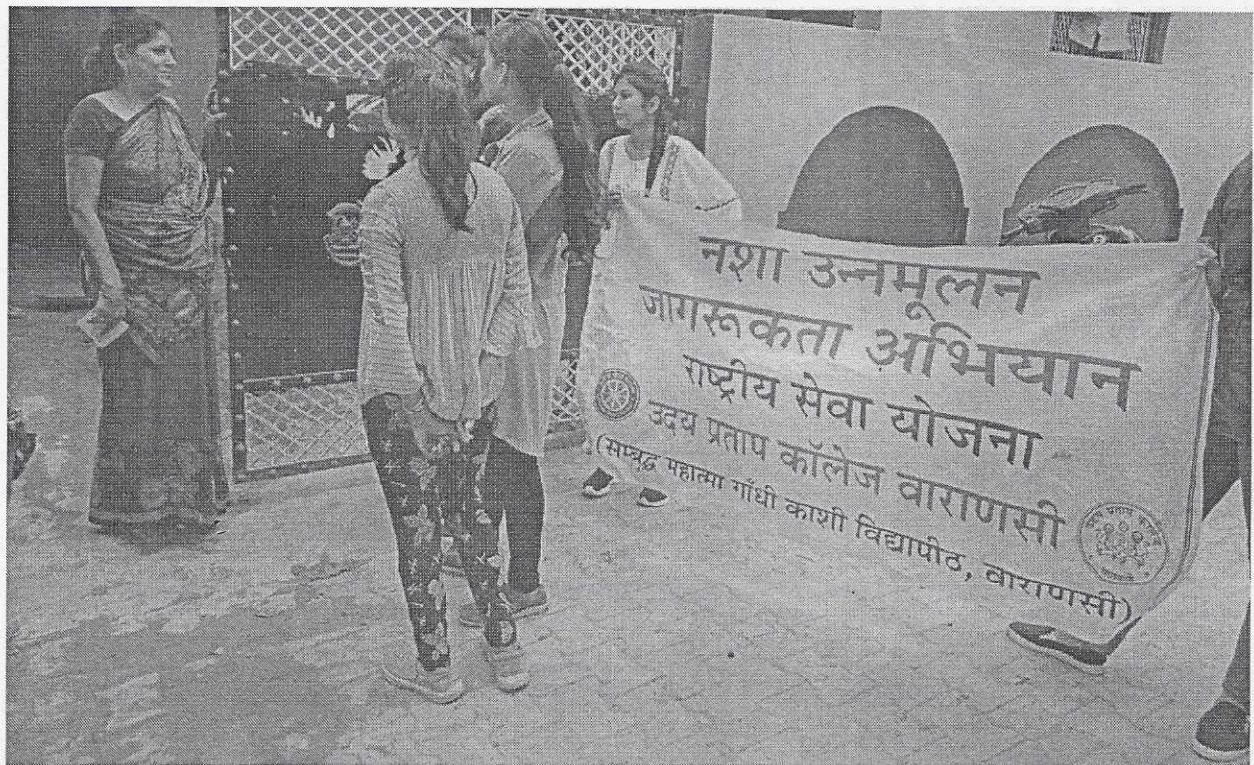 नशा उन्नमूलन
जागरूकता अभियान
राष्ट्रीय सेवा योजना
उदय प्रताप कॉलेज वाराणसी
(सम्बद्ध महात्मा गाँधी काशी विद्यापीठ, वाराणसी)